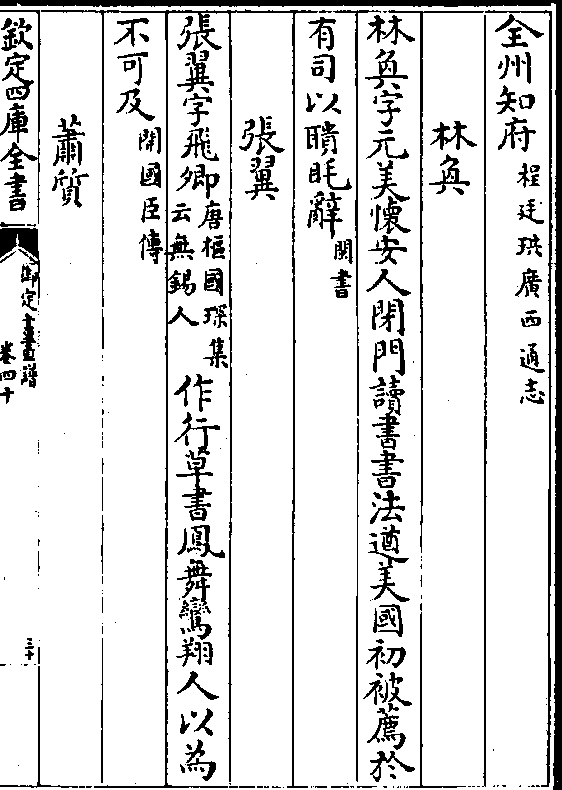 全州知府 程廷珙廣西通志
林奐
林奐字元美懷安人閉門讀書書法遒美國初被薦於
有司以瞶眊辭 閩書
張翼
張翼字飛卿 唐樞國琛集云無錫人 作行草書鳳舞鸞翔人以為
不可及 開國臣傳
蕭質
欽定四庫全書
御定書畫譜
卷四十